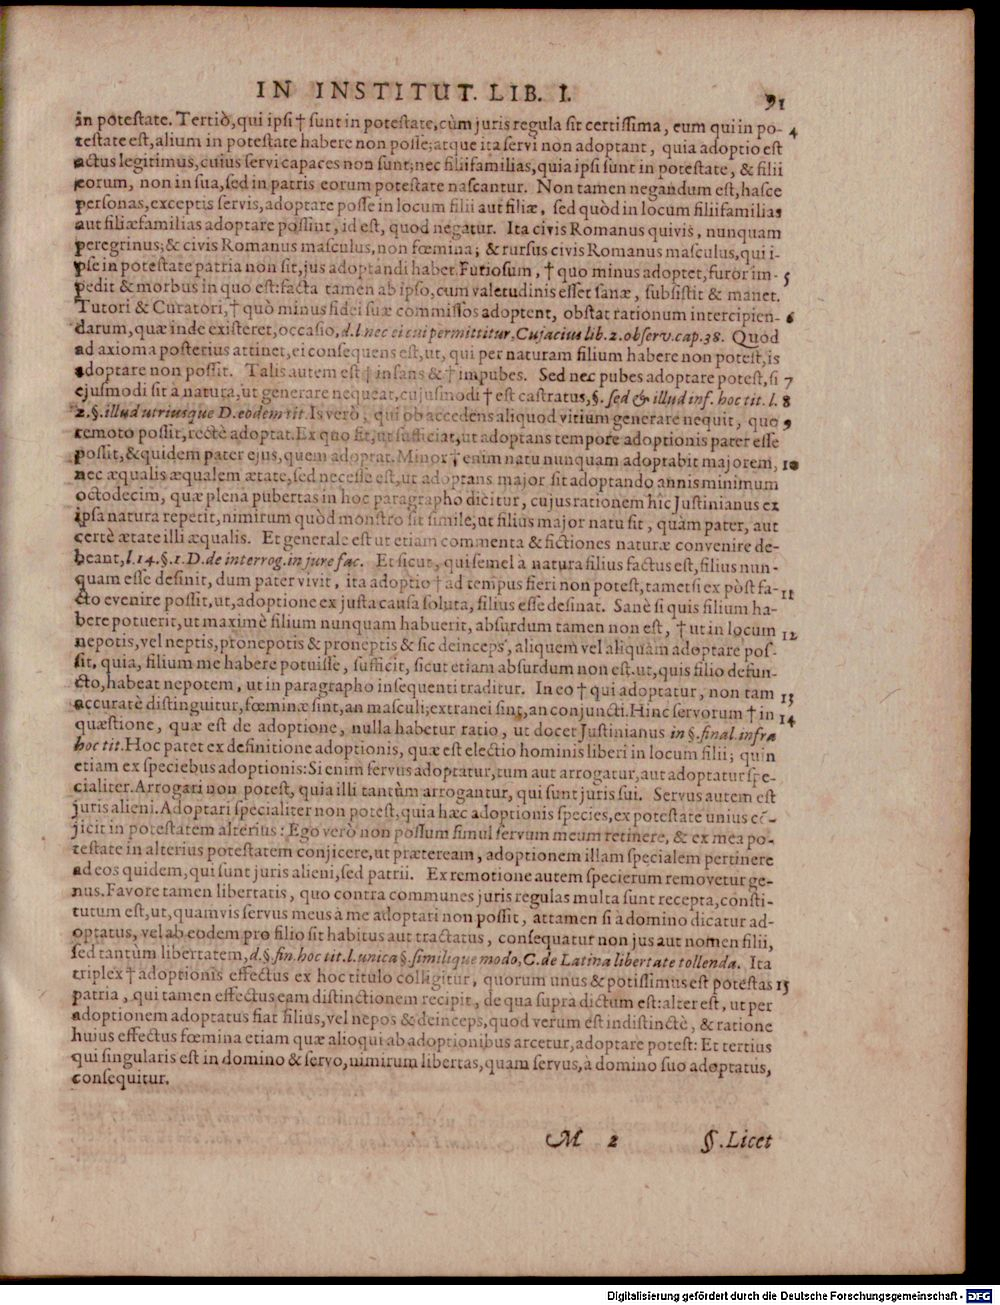 IN INSTITUT. LIB. I. 91
in potestate. Tertiò, qui ipsi † sunt in potestate, cùm juris regula sit certissima, eum qui in po- 4
testate est, alium in potestate habere non posse; atque ita servi non adoptant, quia adoptio est
actus legitimus, cuius servi capaces non sunt; nec filiifamilias, quia ipsi sunt in potestate, & filii
eorum, non in sua, sed in patris eorum potestate nascantur. Non tamen negandum est, hasce
personas, exceptis servis, adoptare posse in locum filii aut filiæ, sed quòd in locum filiifamilias
aut filiæfamilias adoptare possint, id est, quod negatur. Ita civis Romanus quivis, nunquam
peregrinus; & civis Romanus masculus, non fœmina; & rursus civis Romanus masculus, qui i-
pse in potestate patria non sit, jus adoptandi habet. Furiosum, † quo minus adoptet, furor im- 5
pedit & morbus in quo est: facta tamen ab ipso, cum valetudinis esset sanæ, subsistit & manet.
Tutori & Curatori, † quò minus fidei suæ commissos adoptent, obstat rationum intercipien- 6
darum, quæ inde existeret, occasio, d. l. nec ei cui permittitur. Cujacius lib. 2. observ. cap. 38. Quod
ad axioma posterius attinet, ei consequens est, ut, qui per naturam filium habere non potest, is
adoptare non possit. Talis autem est † insans & † impubes. Sed nec pubes adoptare potest, si 7
ejusmodi sit à natura, ut generare nequeat, cujusmodi † est castratus, §. sed & illud inf. hoc tit. l. 8
2. §. illud utriusque D. eodem tit. Is verò, qui ob accedens aliquod vitium generare nequit, quo 9
remoto possit, rectè adoptat. Ex quo fit, ut sufficiat, ut adoptans tempore adoptionis pater esse
possit, & quidem pater ejus, quem adoptat. Minor † enim natu nunquam adoptabit majorem, 10
nec æqualis æqualem ætate, sed necesse est, ut adoptans major sit adoptando annis minimum
octodecim, quæ plena pubertas in hoc paragrapho dicitur, cujus rationem hîc Justinianus ex
ipsa natura repetit, nimirum quòd monstro sit simile, ut filius major natu sit, quàm pater, aut
certè ætate illi æqualis. Et generale est ut etiam commenta & fictiones naturæ convenire de-
beant, l. 14. §. 1. D. de interrog. in jure fac. Et sicut, qui semel à natura filius factus est, filius nun-
quam esse definit, dum pater vivit, ita adoptio † ad tempus fieri non potest, tametsi ex pòst fa- 11
cto evenire possit, ut, adoptione ex justa causa soluta, filius esse desinat. Sanè si quis filium ha-
bere potuerit, ut maximè filium nunquam habuerit, absurdum tamen non est, † ut in locum 12
nepotis, vel neptis, pronepotis & proneptis & sic deinceps, aliquem vel aliquam adoptare pos-
sit, quia, filium me habere potuisse, sufficit, sicut etiam absurdum non est, ut, quis filio defun-
cto, habeat nepotem, ut in paragrapho insequenti traditur. In eo † qui adoptatur, non tam 13
accuratè distinguitur, fœminæ sint, an masculi; extranei sint, an conjuncti. Hinc servorum † in 14
quæstione, quæ est de adoptione, nulla habetur ratio, ut docet Justinianus in §. final. infra
hoc tit. Hoc patet ex definitione adoptionis, quæ est electio hominis liberi in locum filii; quin
etiam ex speciebus adoptionis: Si enim servus adoptatur, tum aut arrogatur, aut adoptatur spe-
cialiter. Arrogari non potest, quia illi tantùm arrogantur, qui sunt juris sui. Servus autem est
juris alieni. Adoptari specialiter non potest, quia hæc adoptionis species, ex potestate unius cõ-
jicit in potestatem alterius: Ego verò non possum simul servum meum retinere, & ex mea po-
testate in alterius potestatem conjicere, ut præteream, adoptionem illam specialem pertinere
ad eos quidem, qui sunt juris alieni, sed patrii. Ex remotione autem specierum removetur ge-
nus. Favore tamen libertatis, quo contra communes juris regulas multa sunt recepta, consti-
tutum est, ut, quamvis servus meus à me adoptari non possit, attamen si à domino dicatur ad-
optatus, vel ab eodem pro filio sit habitus aut tractatus, consequatur non jus aut nomen filii,
sed tantùm libertatem, d. §. fin. hoc tit. l. unica §. similique modo, C. de Latina libertate tollenda. Ita
triplex † adoptionis effectus ex hoc titulo colligitur, quorum unus & potissimus est potestas 15
patria, qui tamen effectus eam distinctionem recipit, de qua supra dictum est: alter est, ut per
adoptionem adoptatus fiat filius, vel nepos & deinceps, quod verum est indistinctè, & ratione
huius effectus fœmina etiam quæ alioqui ab adoptionibus arcetur, adoptare potest: Et tertius
qui singularis est in domino & servo, nimirum libertas, quam servus, à domino suo adoptatus,
consequitur.
M 2 §. Licet
Digitalisierung gefördert durch die Deutsche Forschungsgemeinschaft - DFG